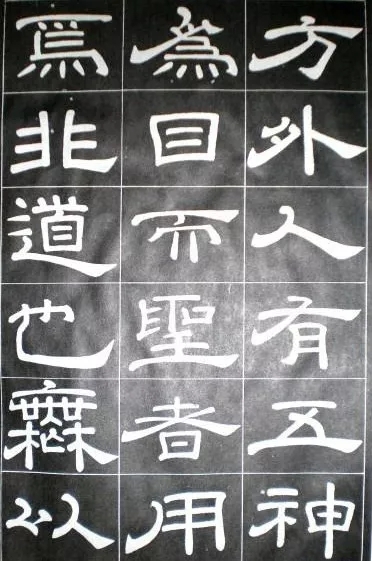 方外人有五神
為目而聖者用
焉非道也橆以